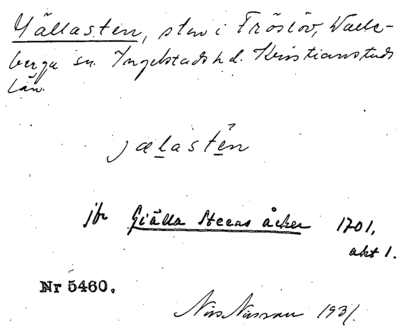 Gällasten, sten i Fröslöv, Valle-
berga sn. Ingelstads hd. Kristianstads
län.
jælastén
jfr Giälla Steens åcker 1701,
akt 1.
Nr 5460.
1931.